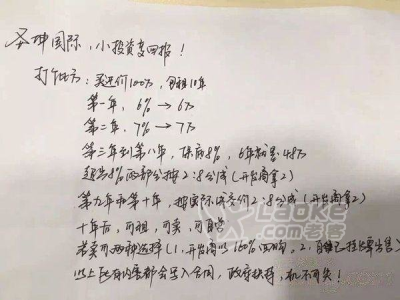 圣坤国际,小投资高回报!
打个比方:买进价100万,包租10年
第一年,6% → 6万
第二年,7% → 7万
第三年到第八年,保底8%,6年就是48万
超出8%的部分按2:8分成(开发商拿2)
第九年和第十年,按实际租金价2:8分成(开发商拿2)
十年后,可租,可卖,可自营
若卖可两种选择(1,开发商以160%回购。2,自己挂牌出售)
以上所有内容都会写入合同,政府扶持,机不可失!
Laoke
老客